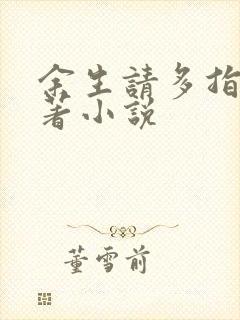 余生請多指
著小說
董雪前